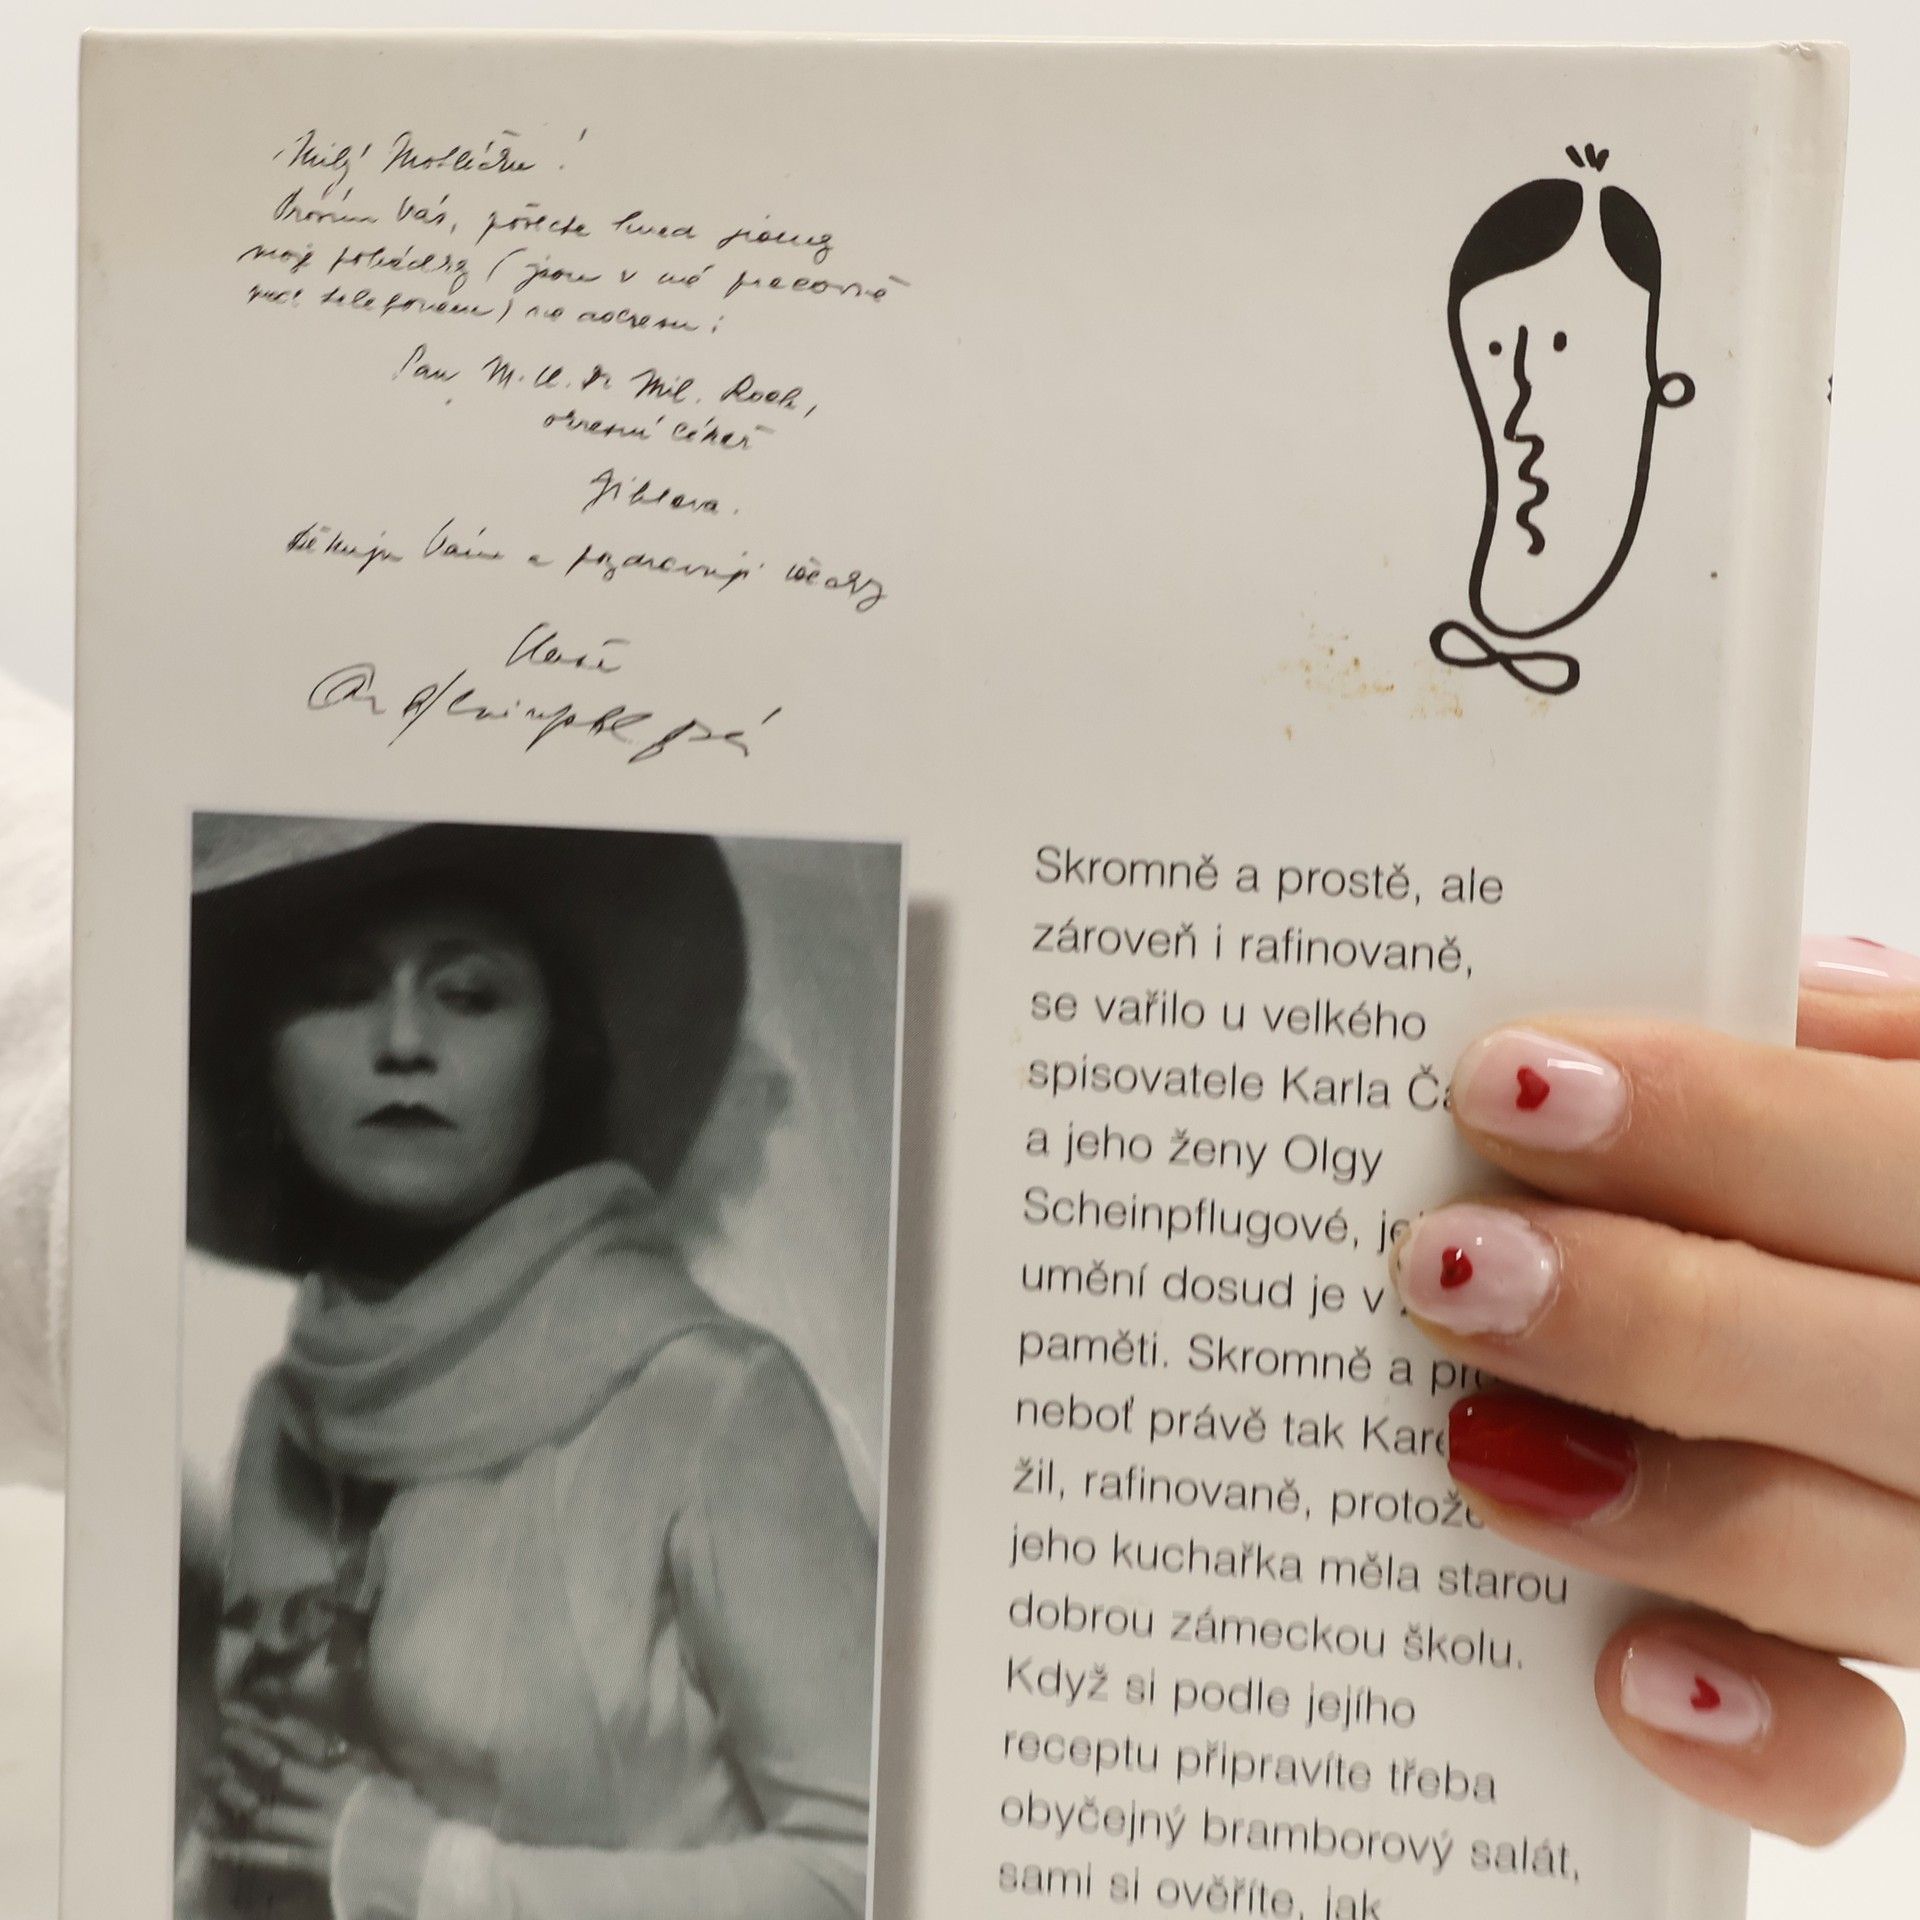 Milý Motlíčku!
Prosím Vás, pošlete hned
(jsou v mé pracovně
telefonem) na adresu:
Pan M.U.Dr Mil. Roch,
okresní lékař
Jihlava.
děkuju Vám a pozdravuji všecky
Vaše
Skromně a prostě, ale
zároveň i rafinovaně,
se vařilo u velkého
spisovatele Karla
a jeho ženy Olgy
Scheinpflugové,
umění dosud je v
paměti. Skromně a
neboť právě tak
žil, rafinovaně, protože
jeho kuchařka měla starou
dobrou zámeckou školu.
Když si podle jejího
receptu připravíte třeba
obyčejný bramborový salát,
sami si ověříte, jak